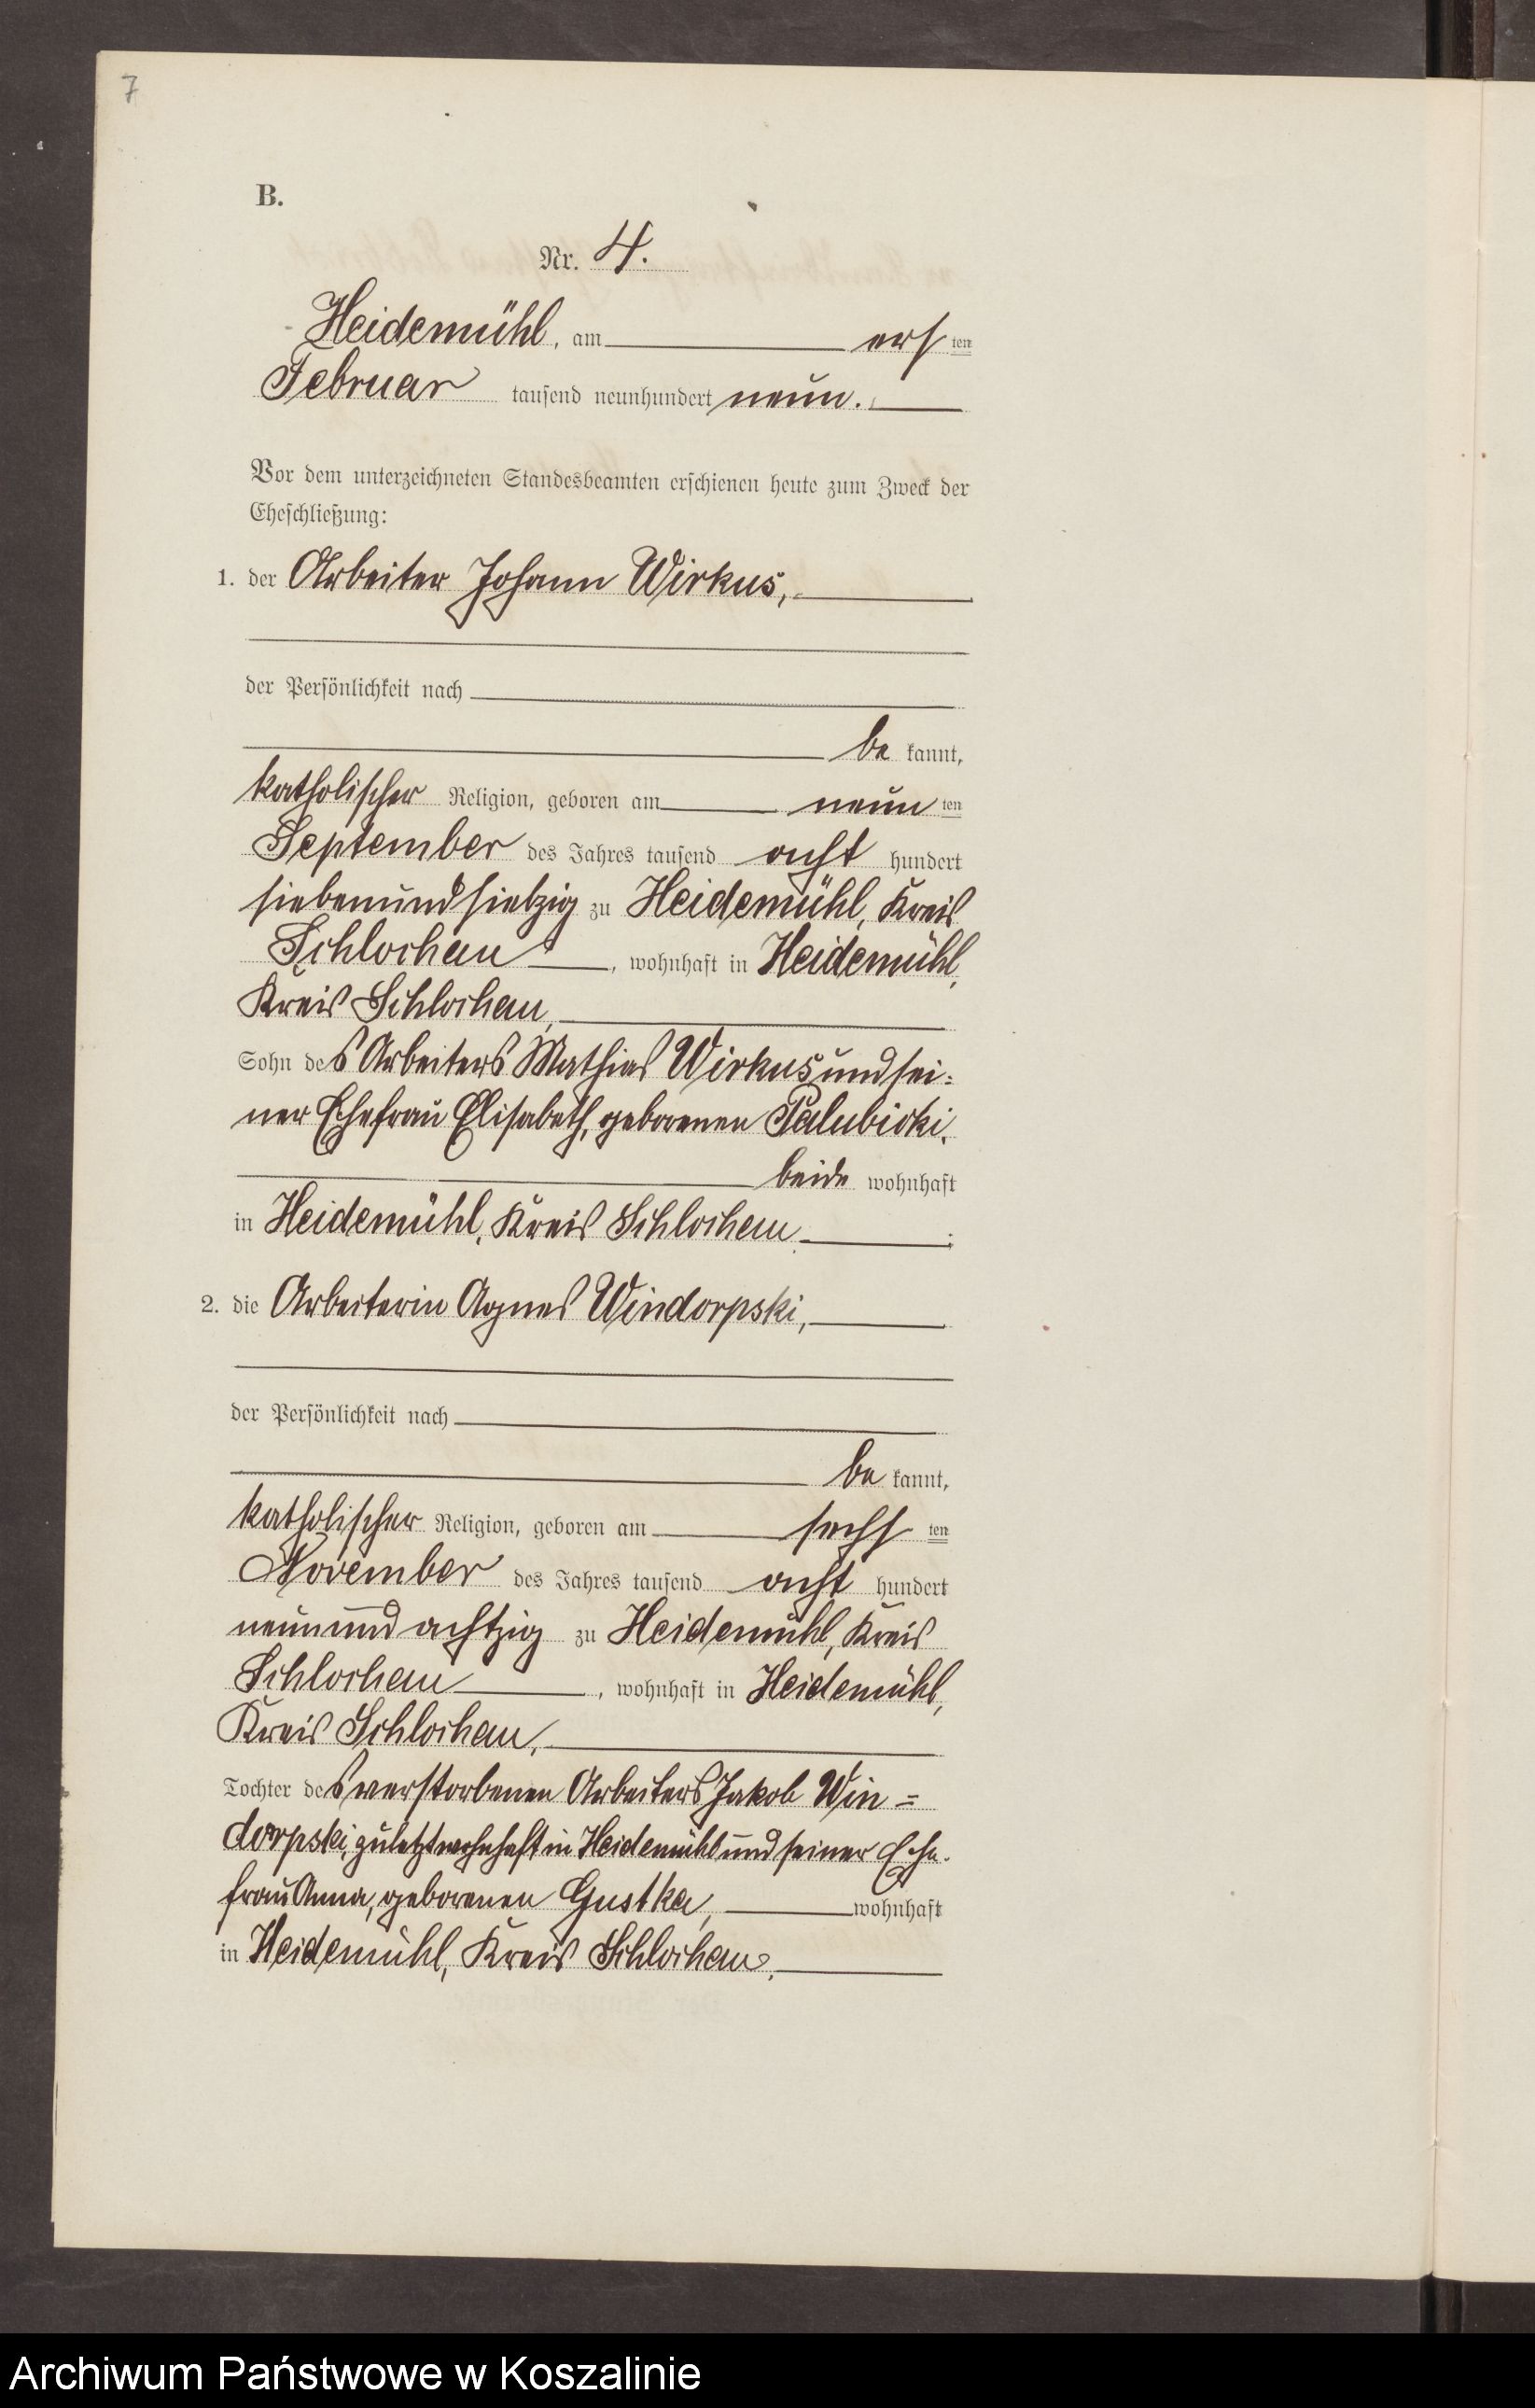 7
B.
Nr. 4.
Heidemühl, am ersten
Februar tausend neunhundert neun.
Vor dem unterzeichneten Standesbeamten erschienen heute zum Zweck der
Eheschließung:
1. der Arbeiter Johann Wirkus,
der Persönlichkeit nach
be kannt,
katholischer Religion, geboren am neun ten
September des Jahres tausend acht hundert
siebenundsiebzig zu Heidemühl, Kreis
Schlochau, wohnhaft in Heidemühl,
Kreis Schlochau,
Sohn des Arbeiters Mathias Wirkus und sei=
ner Ehefrau Elisabeth, geborenen Palubicki,
beide wohnhaft
in Heidemühl, Kreis Schlochau;
2. die Arbeiterin Agnes Windorpski,
der Persönlichkeit nach
be kannt,
katholischer Religion, geboren am sechs ten
November des Jahres tausend acht hundert
neunundachtzig zu Heidemühl, Kreis
Schlochau, wohnhaft in Heidemühl,
Kreis Schlochau,
Tochter des verstorbenen Arbeiters Jakob Win=
dorpski, zuletzt wohnhaft in Heidemühl und seiner Ehe-
frau Anna, geborenen Gustka, wohnhaft
in Heidemühl, Kreis Schlochau.
Archiwum Państwowe w Koszalinie